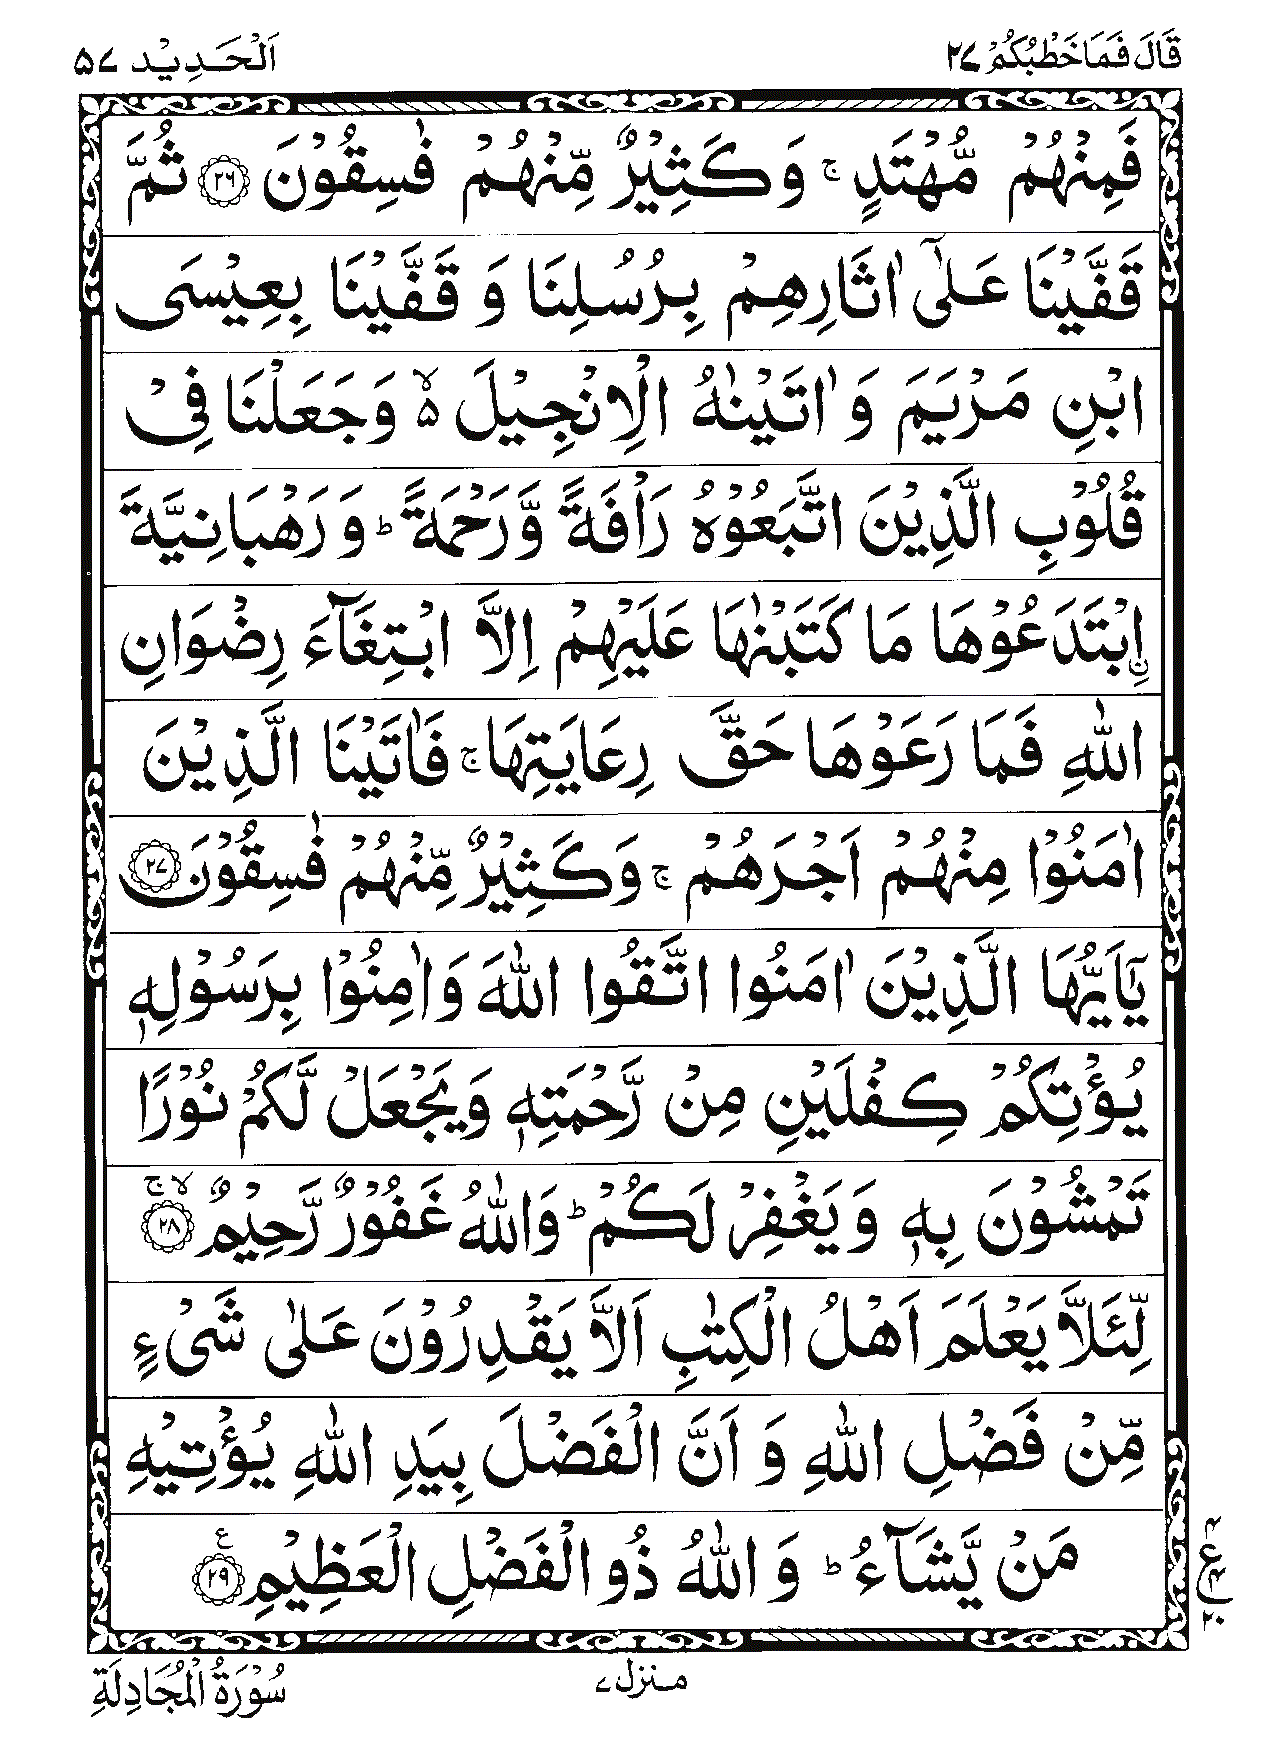 قَالَ فَمَا خَطْبُكُمْ ٢٧
اَلْحَدِيْد ٥٧
فَمِنْهُمْ مُّهْتَدٍ ۚ وَكَثِيْرٌ مِّنْهُمْ فٰسِقُوْنَ ﴿٢٦﴾ ثُمَّ
قَفَّيْنَا عَلٰٓى اٰثَارِهِمْ بِرُسُلِنَا وَ قَفَّيْنَا بِعِيْسَى
ابْنِ مَرْيَمَ وَ اٰتَيْنٰهُ الْاِنْجِيْلَ ۙ٥ وَجَعَلْنَا فِىْ
قُلُوْبِ الَّذِيْنَ اتَّبَعُوْهُ رَاْفَةً وَّرَحْمَةً ؕ وَ رَهْبَانِيَّةَ
ۨابْتَدَعُوْهَا مَا كَتَبْنٰهَا عَلَيْهِمْ اِلَّا ابْتِغَآءَ رِضْوَانِ
اللّٰهِ فَمَا رَعَوْهَا حَقَّ رِعَايَتِهَا ۚ فَاٰتَيْنَا الَّذِيْنَ
اٰمَنُوْا مِنْهُمْ اَجْرَهُمْ ۚ وَكَثِيْرٌ مِّنْهُمْ فٰسِقُوْنَ ﴿٢٧﴾
يٰٓاَيُّهَا الَّذِيْنَ اٰمَنُوا اتَّقُوا اللّٰهَ وَاٰمِنُوْا بِرَسُوْلِهٖ
يُؤْتِكُمْ كِفْلَيْنِ مِنْ رَّحْمَتِهٖ وَيَجْعَلْ لَّكُمْ نُوْرًا
تَمْشُوْنَ بِهٖ وَ يَغْفِرْ لَكُمْ ؕ وَاللّٰهُ غَفُوْرٌ رَّحِيْمٌ ﴿٢٨﴾ ۙۚ
لِّئَلَّا يَعْلَمَ اَهْلُ الْكِتٰبِ اَلَّا يَقْدِرُوْنَ عَلٰى شَىْءٍ
مِّنْ فَضْلِ اللّٰهِ وَ اَنَّ الْفَضْلَ بِيَدِ اللّٰهِ يُؤْتِيْهِ
مَنْ يَّشَآءُ ؕ وَ اللّٰهُ ذُو الْفَضْلِ الْعَظِيْمِ ﴿٢٩﴾ ع
منزل ٧
سُوْرَةُ الْمُجَادِلَةِ